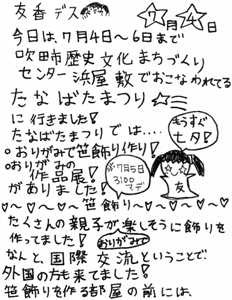 友香デス
7月4日
今日は、7月4日〜6日まで
吹田市歴史文化まちづくり
センター浜屋敷でおこなわれてる
たなばたまつり☆彡
に行きました!
もうすぐ
七夕!
たなばたまつりでは‥‥
○おりがみで笹飾り作り!
○おりがみの
作品展!
がありました!
※7月5日
3:00
マデ
友
♡〜♡〜♡笹飾り〜♡〜♡〜♡
たくさんの親子が楽しそうに飾りを
作ってました!
おりがみで
なんと、国際交流ということで
外国の方も来てました!
笹飾りを作る部屋の前には、